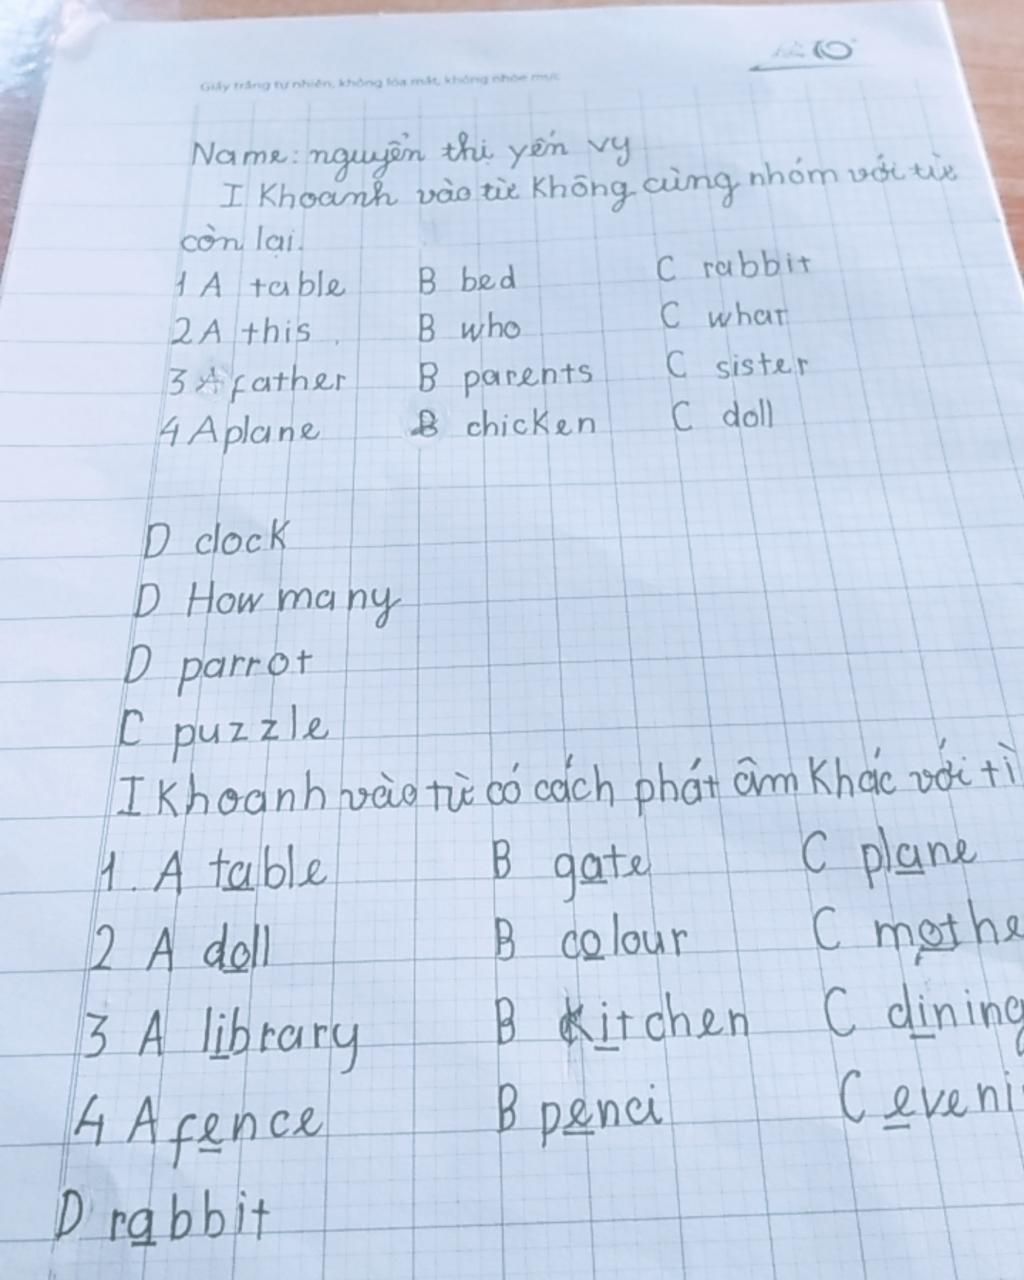 Giấy trắng tự nhiên, không lóa mắt, không nhòe mực
Name: nguyễn thị yến vy
I Khoanh vào từ không cùng nhóm với từ
còn lại.
1 A table B bed C rabbit
2 A this B who C what
3 A father B parents C sister
4 A plane B chicken C doll
D clock
D How many
D parrot
C puzzle
I Khoanh vào từ có cách phát âm khác với
1. A table B gate C plane
2 A doll B colour C mothe
3 A library B kitchen C dining
4 A fence B penci C eveni
D rabbit